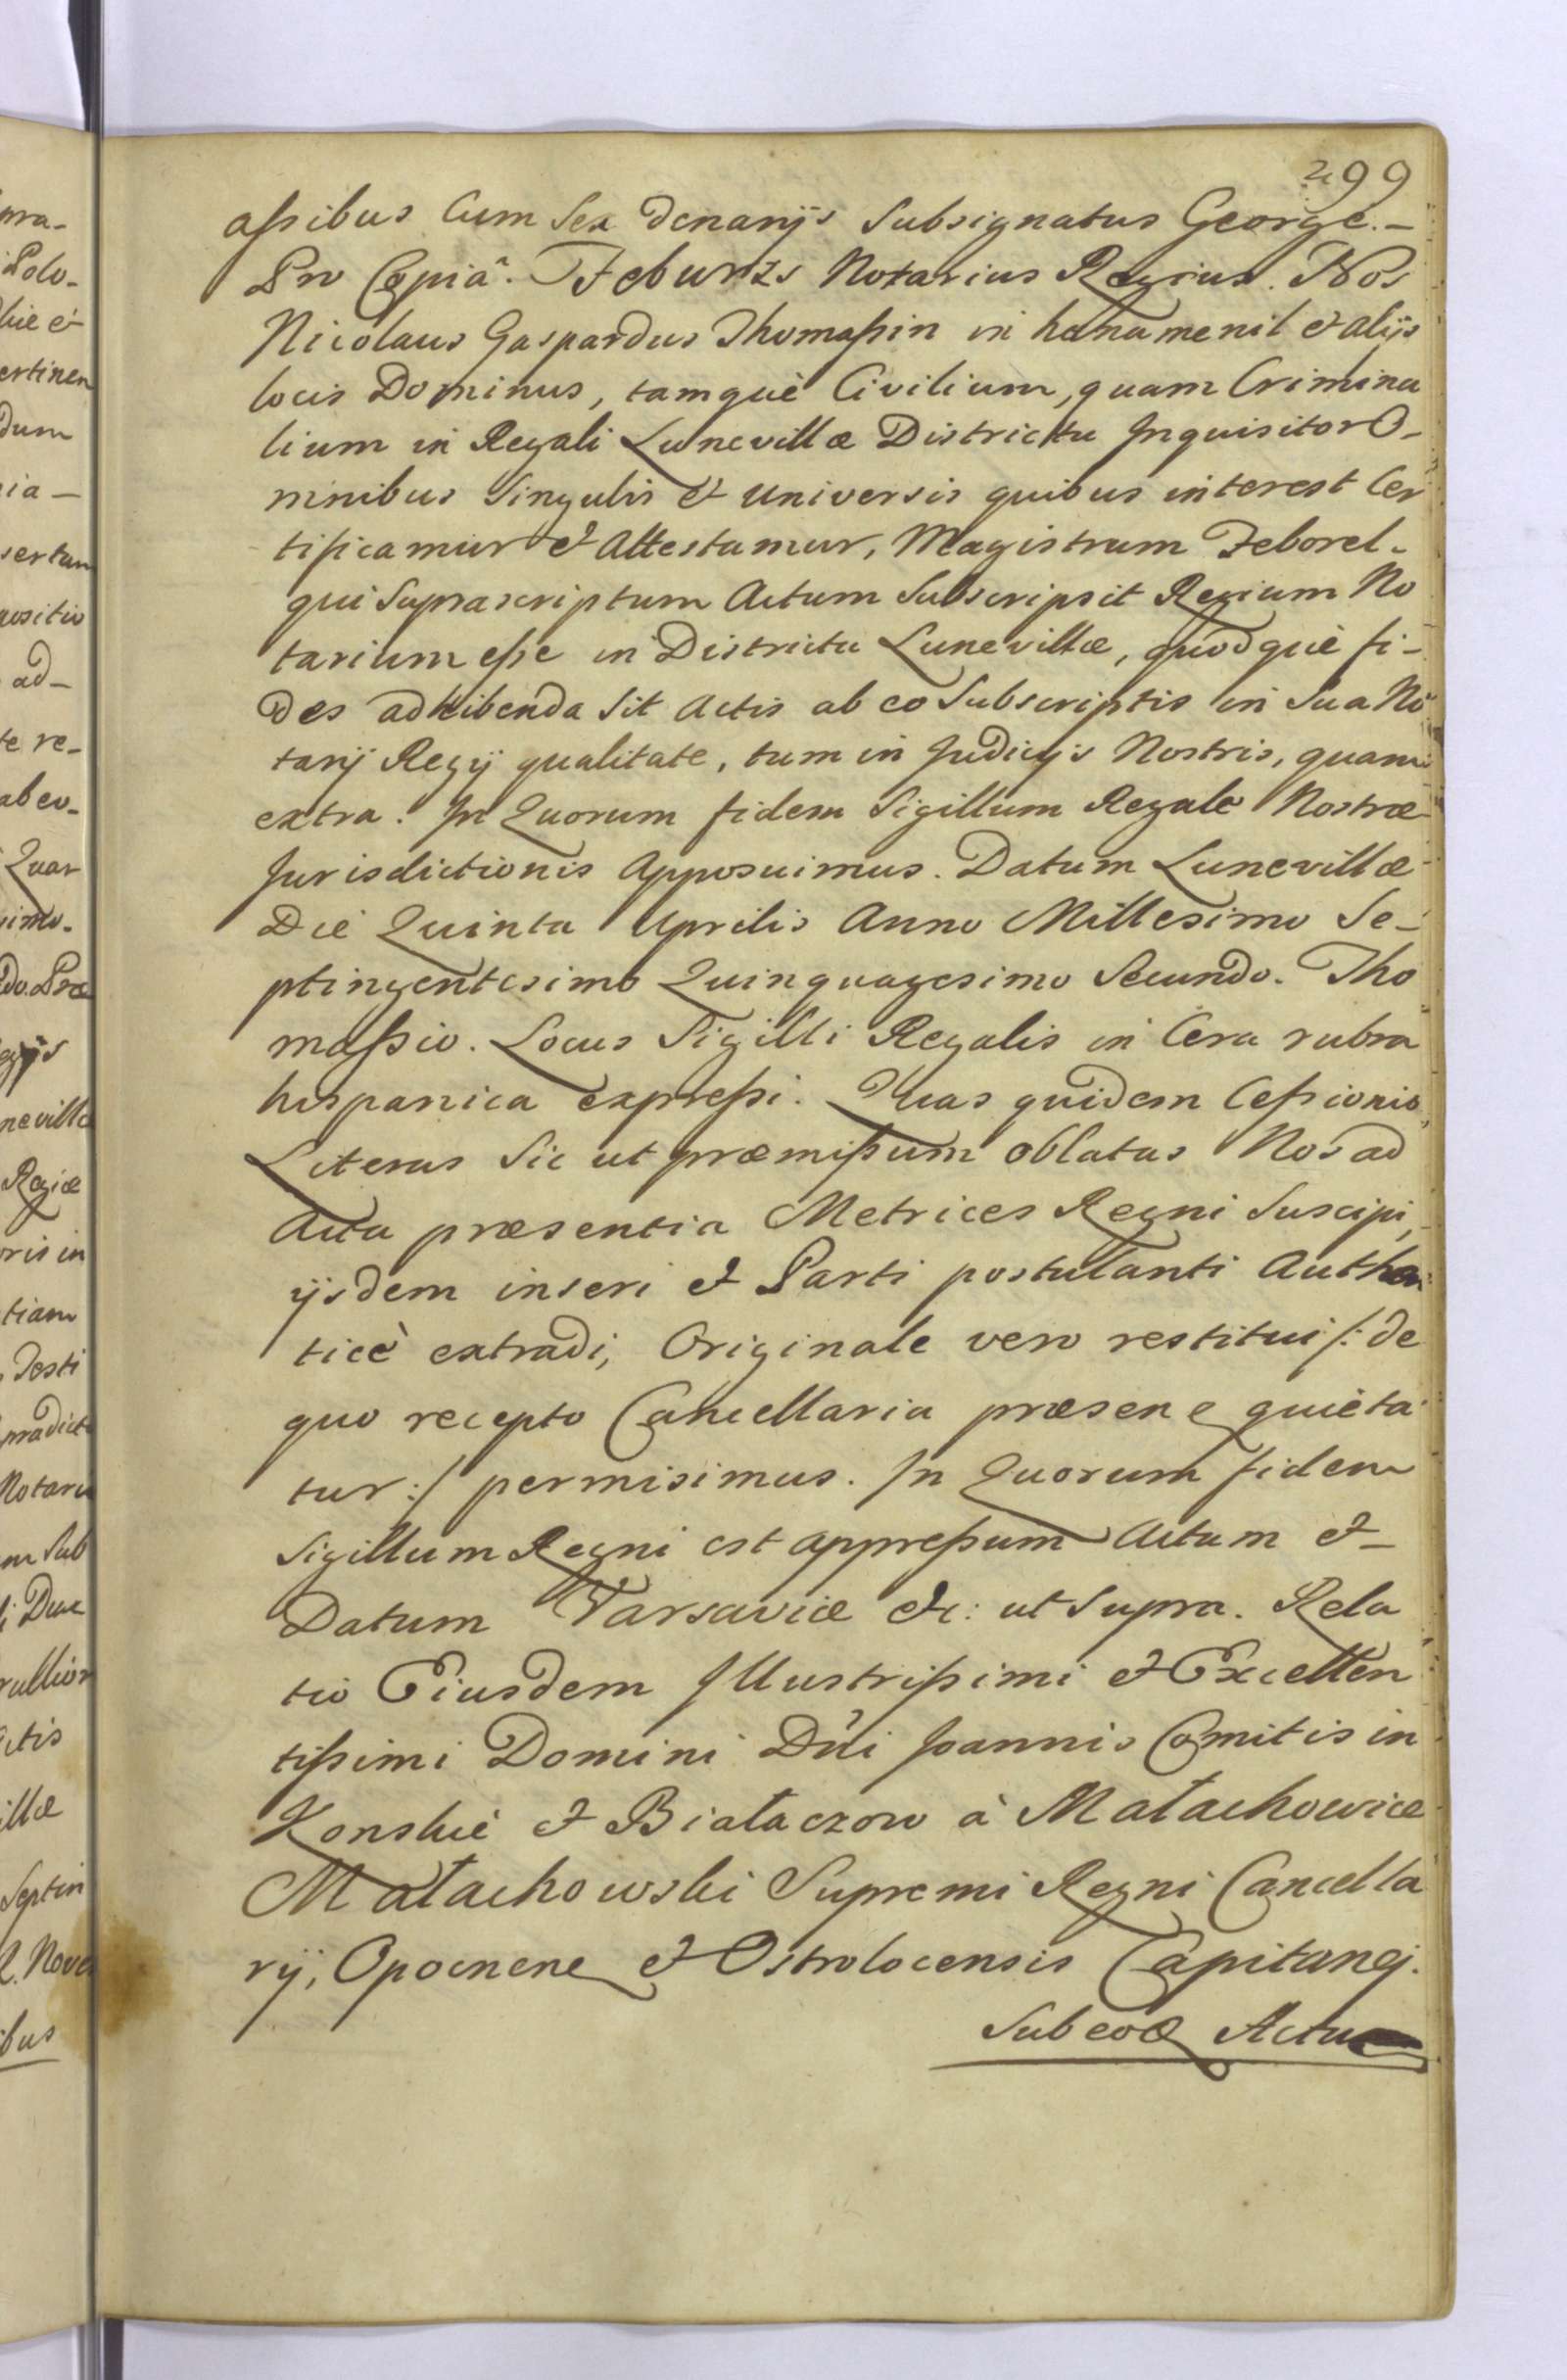 299
aſsibus Cum Sex Denarijs Subsignatus George. –
Pro Copiâ. Feburzs Notarius Regius. Nos
Nicolaus Gaspardus Thomaſsin in hanamenil et alijs
locis Dominus, tamquè Civilium, quam Crimina
lium in Regali Lunevillæ Districtu Inquisitor O-
mnibus Singulis et universis quibus interest Cer
tificamur et Attestamur, Magistrum Feborel-
qui Suprascriptum Actum Subscripsit Regium No
tarium eſse in Districtu Lunevillæ, quodquè fi-
des adhibenda Sit Actis ab eo Subscriptis in Sua No
tarij Regij qualitate, tum in Judicijs Nostris, quam
extra. In Quorum fidem Sigillum Regale Nostræ
Jurisdictionis Apposuimus. Datum Lunevillæ
Die Quinta Aprilis Anno Millesimo Se-
ptingentesimo Quinquagesimo Secundo. Tho
maſsio. Locus Sigilli Regalis in Cera rubra
hispanica expreſsi. Quas quidem Ceſsionis
Literas Sic ut præmiſsum oblatas Nos ad
Acta præsentia Metrices Regni Suscipi,
ijsdem inseri et Parti postulanti Authen
ticè extradi, Originale vero restitui /: de
quo recepto Cancellaria præsen quieta
tur :/ permisimus. In Quorum fidem
Sigillum Regni est appreſsum Actum et –
Datum Varsaviæ &c: ut Supra. Rela
tio Eiusdem Illustriſsimi et Excellen
tiſsimi Domini Dńi Joannis Comitis in
Konskiè et Białaczow à Małachowice
Małachowski Supremi Regni Cancella
rij, Opocnen et Ostrolocensis Capitanej.
Sub eod Actu
pra-
Polo-
ertinen
dum
ia –
sertam
ositio
ad –
te re-
ab eo-
Quar
simo-
do. Præ
gijs
nevillæ
Regiæ
oris in
tiam
Testi
prædict
Notariu
m Sub
i Duæ
ctis
illæ
Septin
R. Nove
ibus